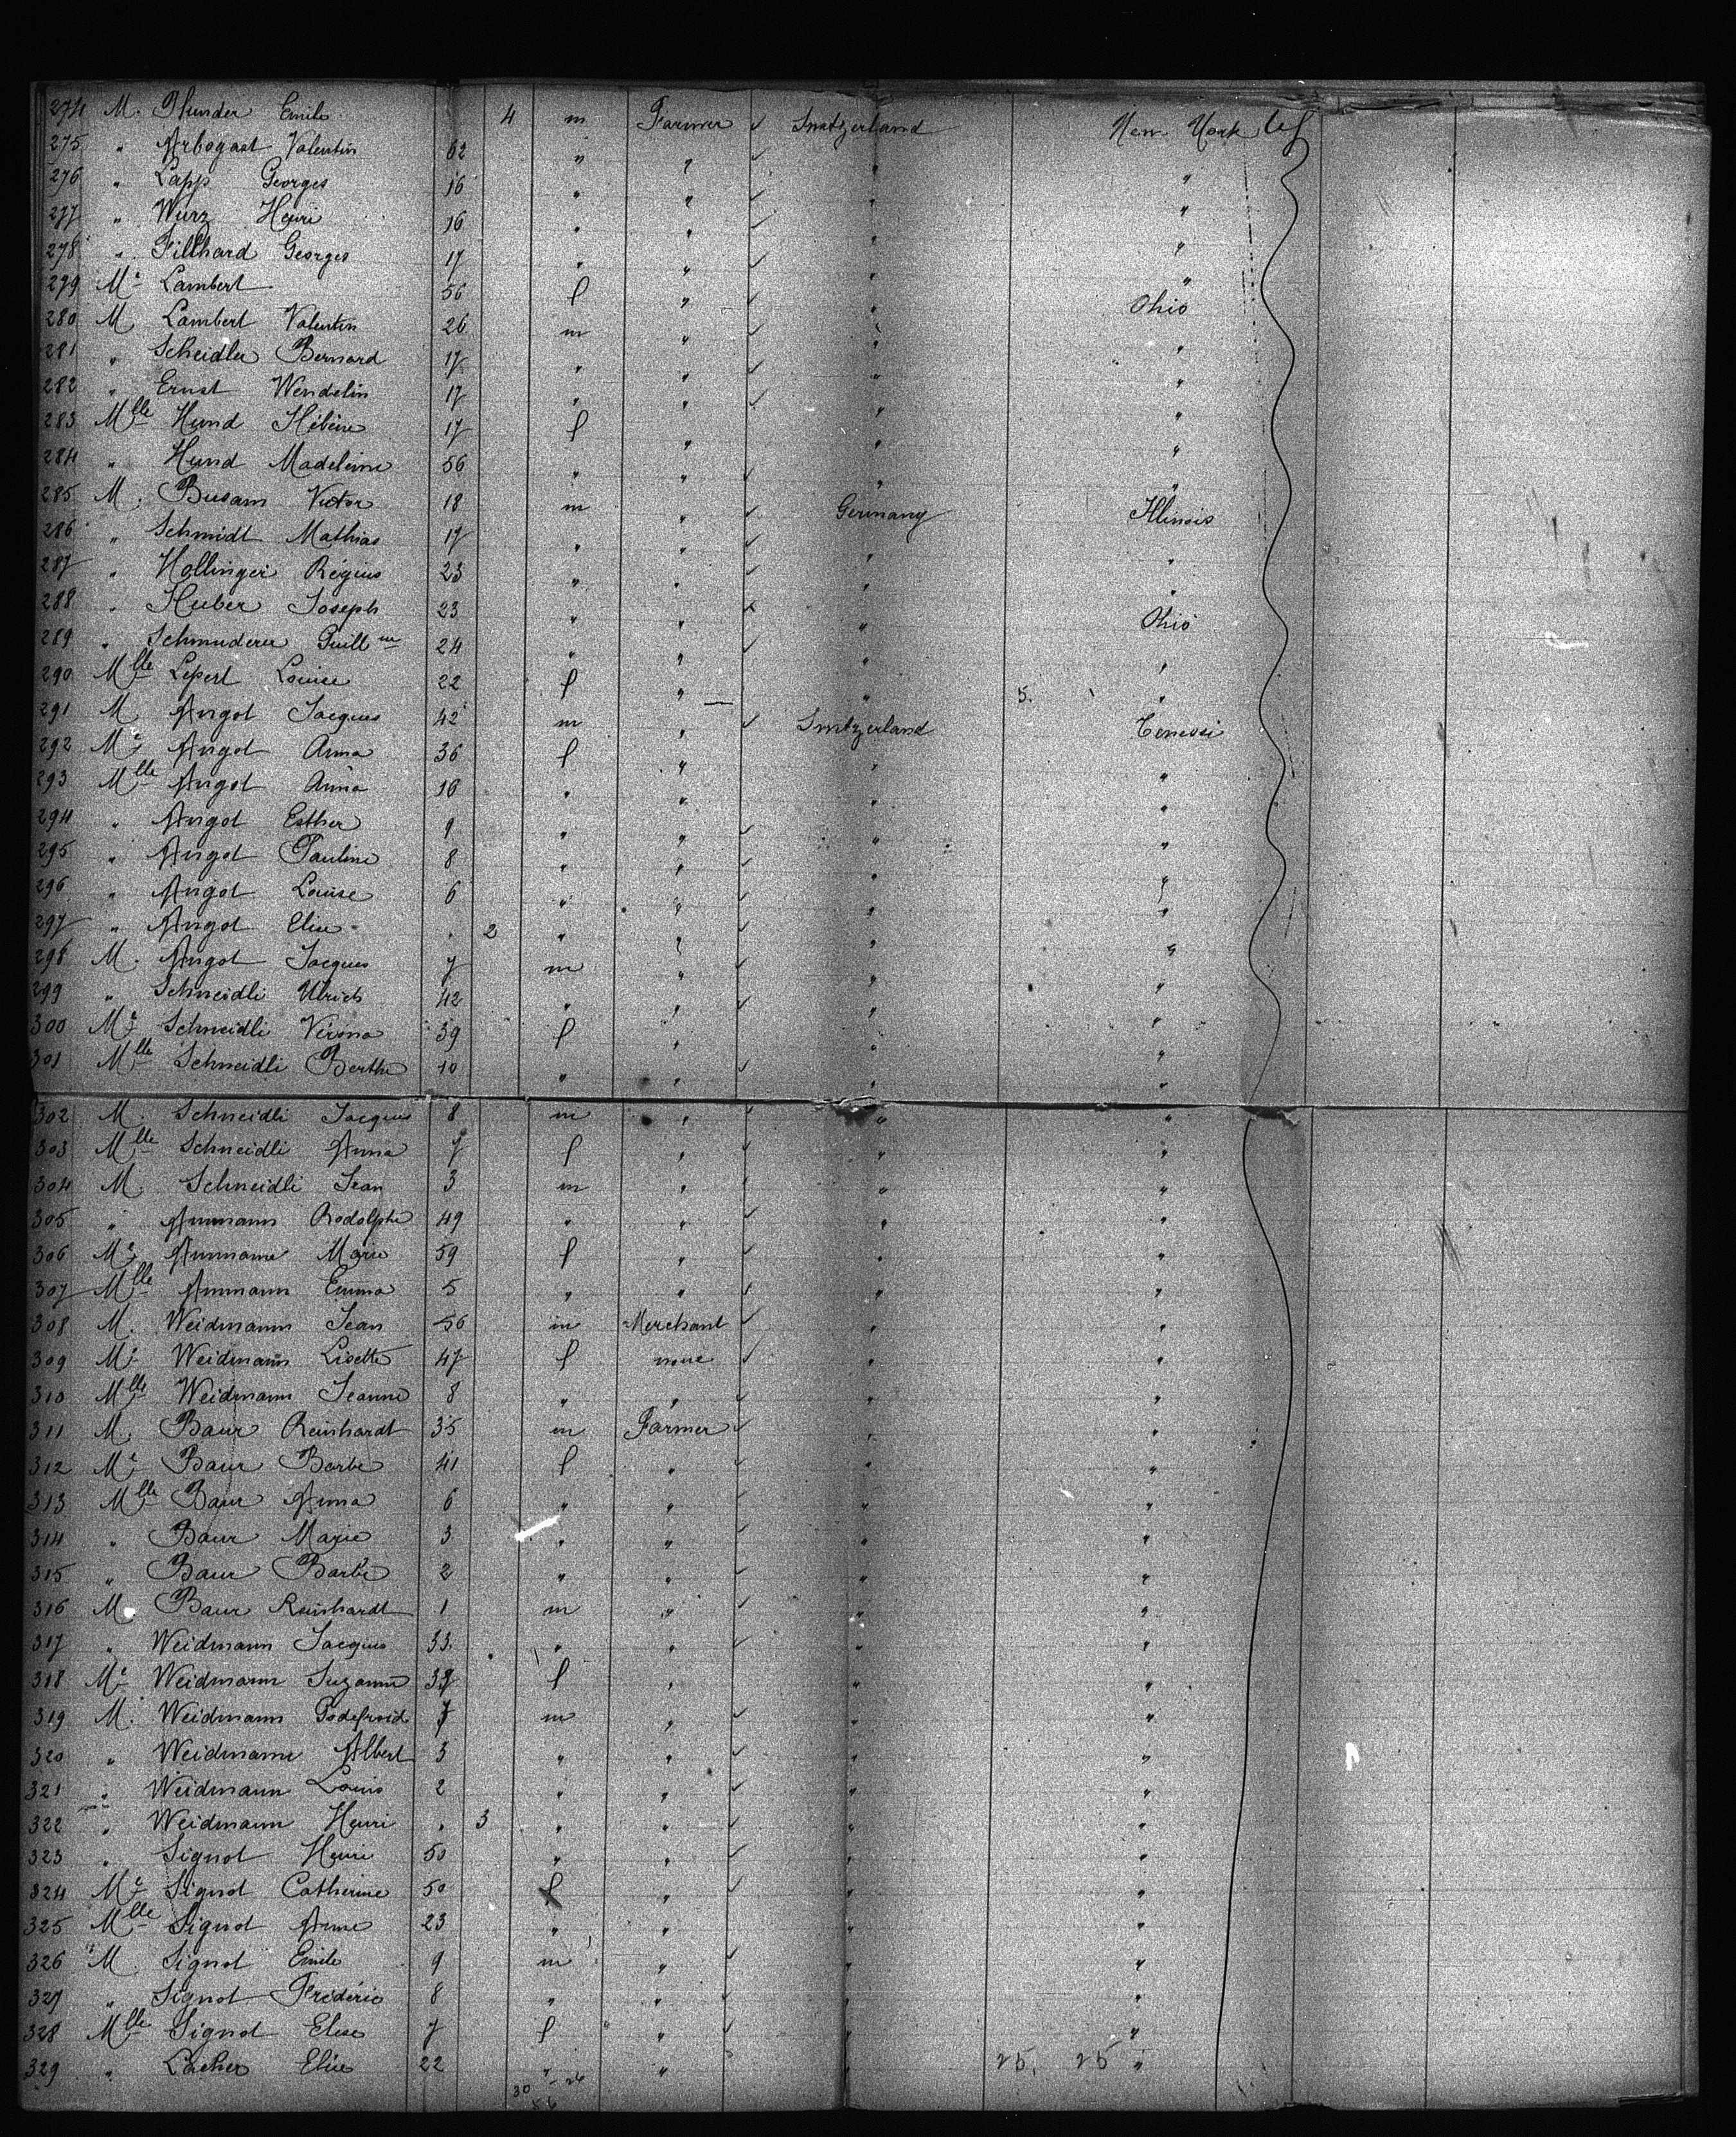 274 M. Pfunder Emile 4 m Farmer ✓ Switzerland New York
275 " Arbogast Valentin 62 " " ✓ " "
276 " Lapp Georges 16 " " ✓ " "
277 " Wurz Henri 16 " " ✓ " "
278 " Fillhard Georges 17 " " ✓ " "
279 Me Lambert 56 f " ✓ " Ohio
280 M Lambert Valentin 26 m " ✓ " "
281 " Scheidler Bernard 17 " " ✓ " "
282 " Ernst Wendelin 17 " " ✓ " "
283 Mlle Hund 17 f " " "
284 " Hund Madeleine 56 " " ✓ " "
285 M. Busam Victor 18 m " ✓ Germany Illinois
286 " Schmidt Mathias 17 " " ✓ " "
287 " Hollinger Régius 23 " " ✓ " "
288 " Huber Joseph 23 " " ✓ " Ohio
289 " Schmuderer Guillme 24 " " ✓ " "
290 Mlle Lepert Louise 22 f " — " 5. "
291 M Angot Jacques 42 m " ✓ Switzerland Tenessi
292 Me Angot Anna 36 f " " "
293 Mlle Angot Anna 16 " " " "
294 " Angot Esther 9 " " ✓ " "
295 " Angot Pauline 8 " " ✓ " "
296 " Angot Louise 6 " " ✓ " "
297 " Angot Elise " 2 " " ✓ " "
298 M. Angot Jacques 7 m " ✓ " "
299 " Schneidli Ulrich 42 " " ✓ " "
300 Me Schneidli Vérona 39 f " " "
301 Mlle Schneidli Berthe 10 " " ✓ " "
302 M. Schneidli Jacques 8 m " ✓ " "
303 Mlle Schneidli Anna 7 f " ✓ " "
304 M. Schneidli Jean 3 m " ✓ " "
305 " Ammann Rodolphe 49 " " ✓ " "
306 Me Ammann Marie 59 f " ✓ " "
307 Mlle Ammann Emma 5 " " ✓ " "
308 M. Weidmann Jean 56 m Merchant ✓ " "
309 Me Weidmann Lisette 47 f none ✓ " "
310 Mlle Weidmann Jeanne 8 " " ✓ " "
311 M. Baur Reinhardt 35 m Farmer ✓ " "
312 Me Baur Barbe 41 f " ✓ " "
313 Mlle Baur Anna 6 " " ✓ " "
314 " Baur Marie 3 " " ✓ " "
315 " Baur Barbe 2 " " ✓ " "
316 M. Baur Reinhardt 1 m " ✓ " "
317 " Weidmann Jacques 33 " " ✓ " "
318 Me Weidmann Suzanne f " " "
319 M. Weidmann Godefroid 7 m " ✓ " "
320 " Weidmann Albert 3 " " ✓ " "
321 " Weidmann Louis 2 " " ✓ " "
322 " Weidmann Henri " 3 " " ✓ " "
323 " Signot Henri 50 " " ✓ " "
324 Me Signot Catherine 50 f " ✓ " "
325 Mlle Signot Anne 23 " " " "
326 M. Signot Emile 9 m " ✓ " "
327 " Signot Frédéric 8 " " ✓ " "
328 Mlle Signot Elise 7 f " ✓ " "
329 " Lacher Elise 22 " " " 25. 25 "
30 - 26
56